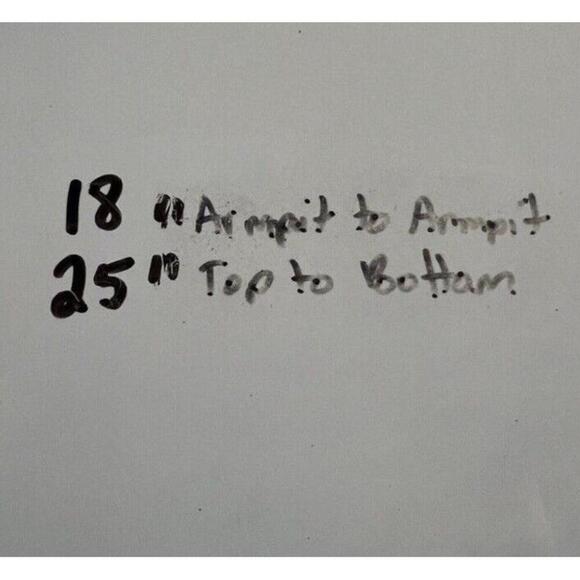 18 " Armpit to Armpit
25 " Top to Bottam